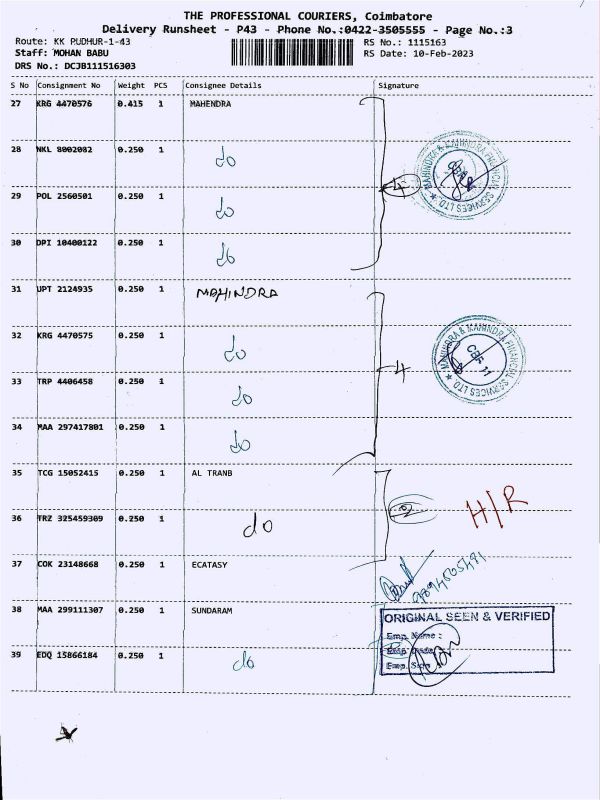 THE PROFESSIONAL COURIERS, Coimbatore
Delivery Runsheet - P43 - Phone No.:0422-3505555 - Page No.:3
Route: KK PUDHUR-1-43 RS No.: 1115163
Staff: MOHAN BABU RS Date: 10-Feb-2023
DRS No.: DCJB111516303
S No Consignment No Weight PCS Consignee Details Signature
27 KRG 4470576 0.415 1 MAHENDRA
28 NKL 8002082 0.250 1 do
MAHINDRA & MAHINDRA FINANCIAL SERVICES LTD.
4
29 POL 2560501 0.250 1 do
30 DPI 10400122 0.250 1 do
31 UPT 2124935 0.250 1 MAHINDRA
32 KRG 4470575 0.250 1 do
MAHINDRA & MAHINDRA FINANCIAL SERVICES LTD.
CBE 11
4
33 TRP 4406458 0.250 1 do
34 MAA 297417801 0.250 1 do
35 TCG 15052415 0.250 1 AL TRANB
2 H/R
36 TRZ 325459309 0.250 1 do
37 COK 23148668 0.250 1 ECATASY
38 MAA 299111307 0.250 1 SUNDARAM
ORIGINAL SEEN & VERIFIED
Emp. Name :
Emp. Code
Emp. Sign
39 EDQ 15866184 0.250 1 do